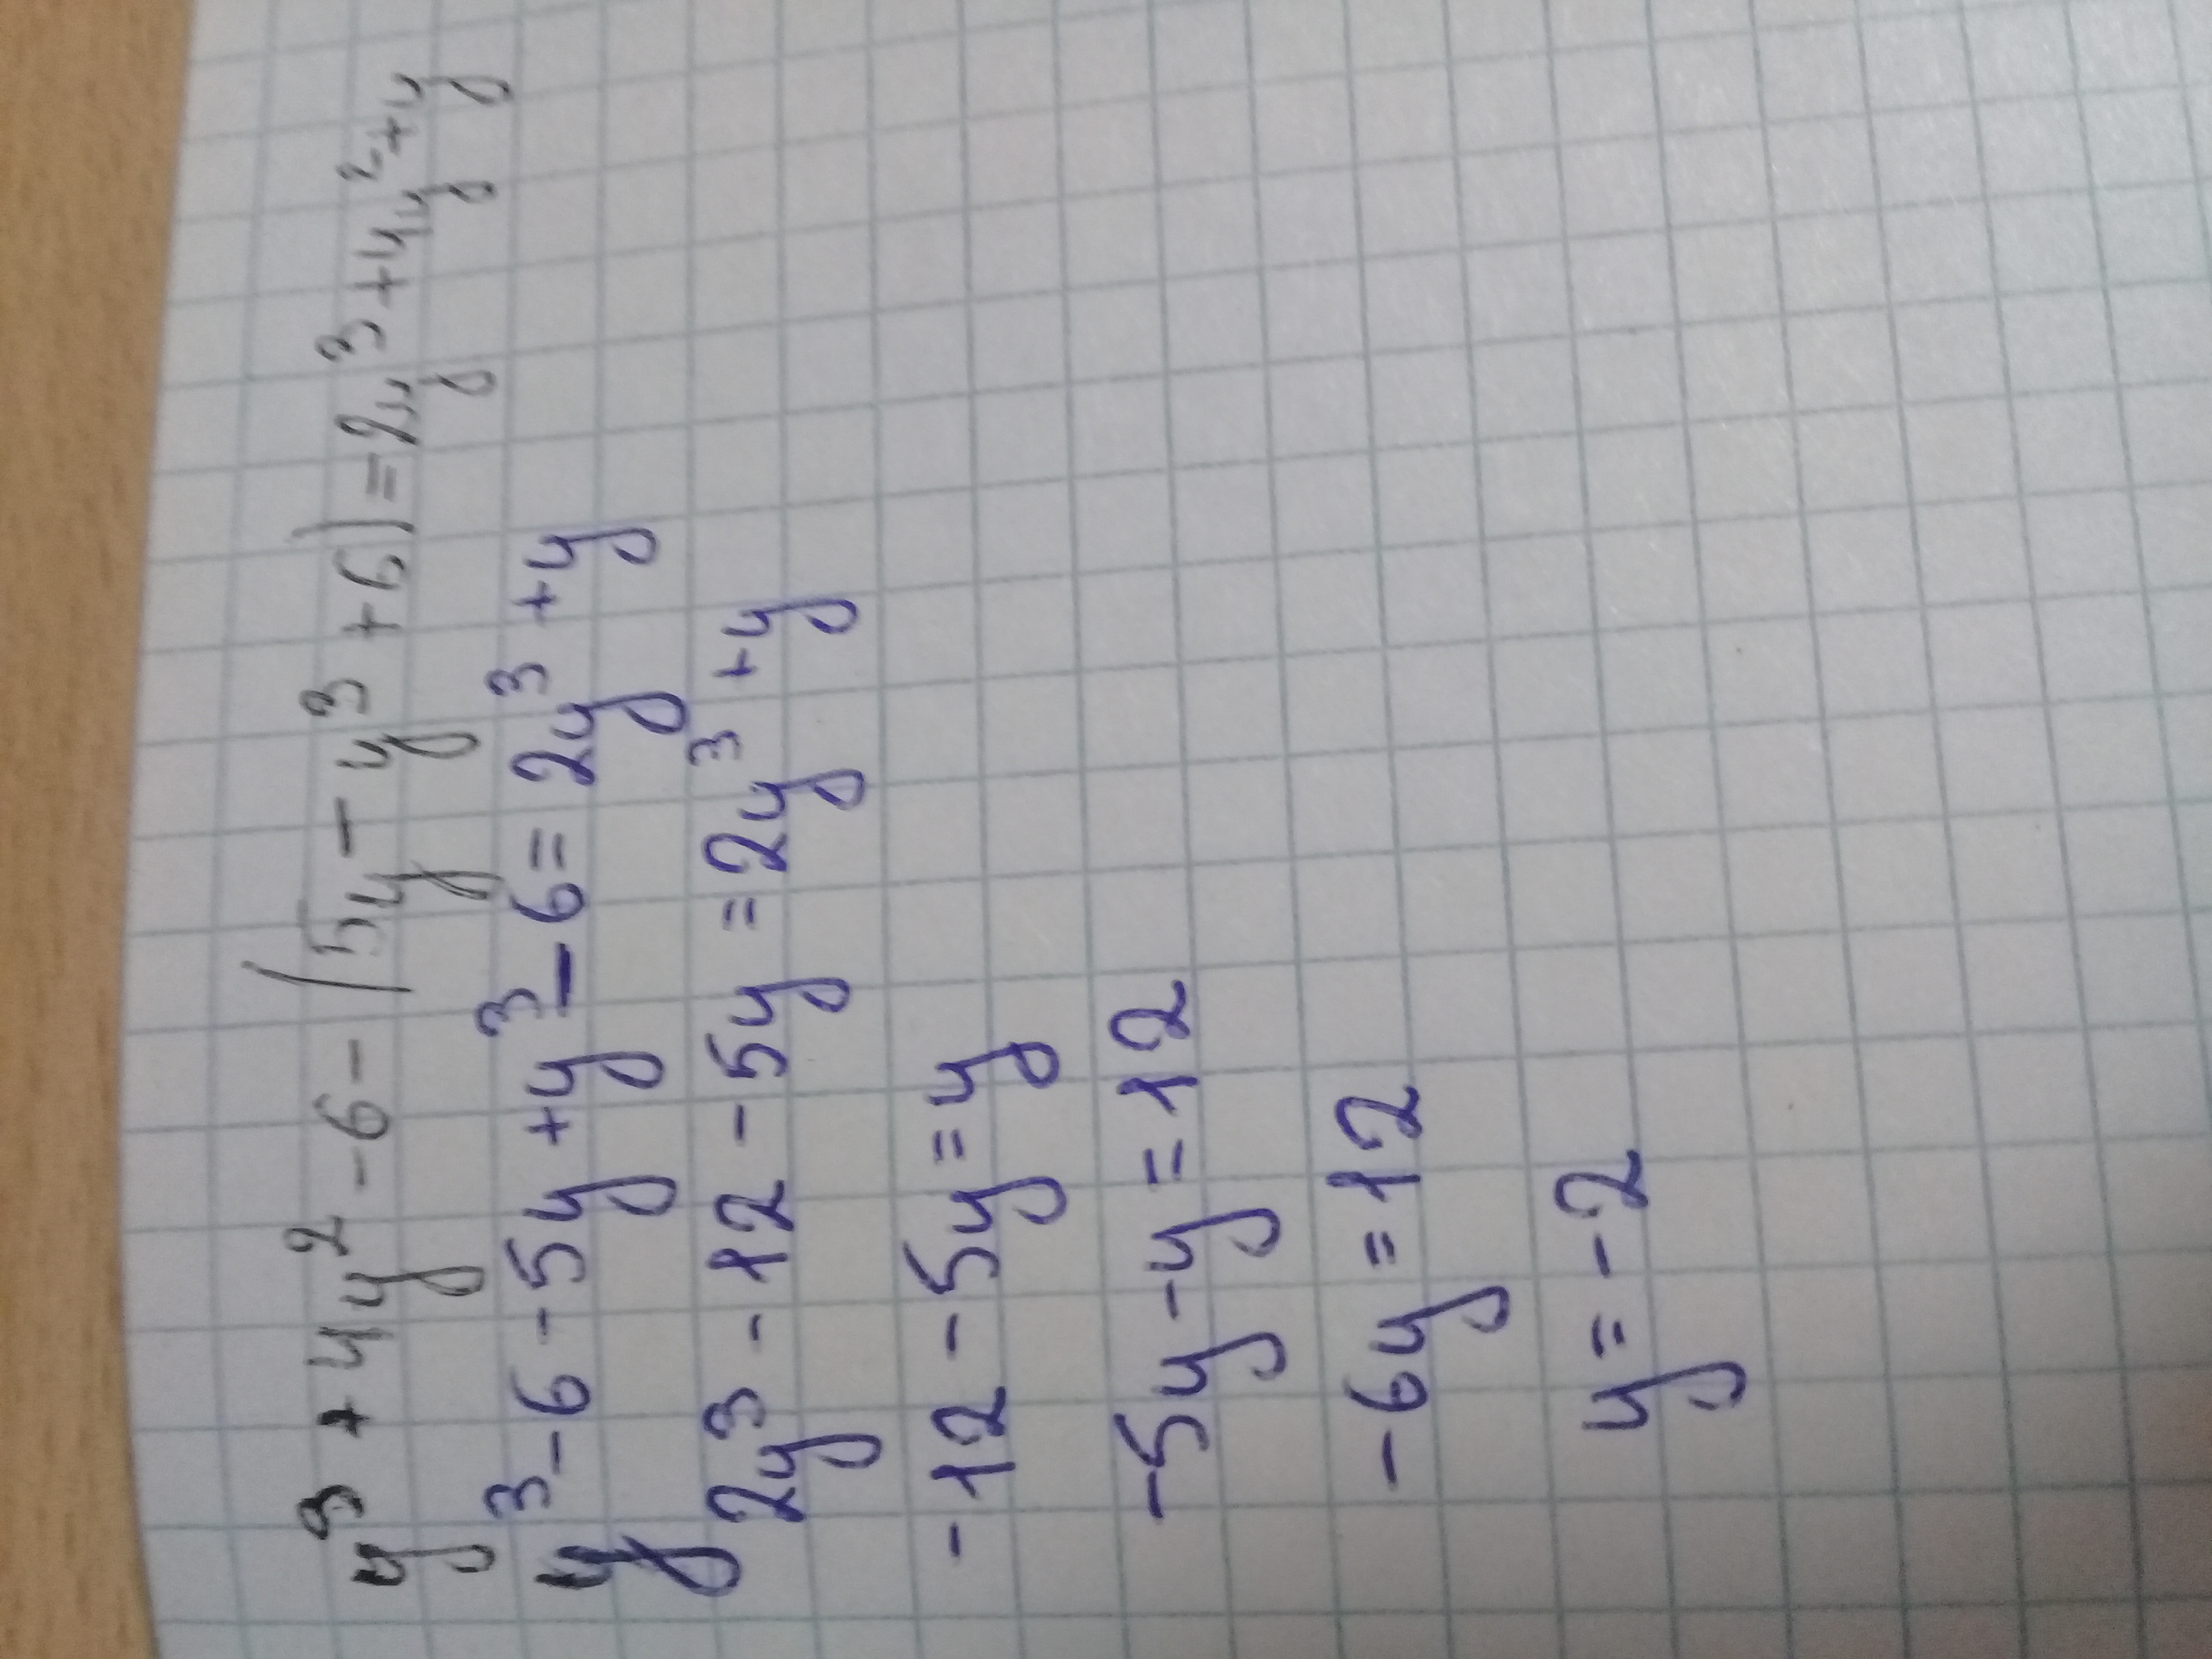 y³ + 4y² - 6 - (5y - y³ + 6) = 2y³ + 4y² + y
y³ - 6 - 5y + y³ - 6 = 2y³ + y
2y³ - 12 - 5y = 2y³ + y
- 12 - 5y = y
-5y - y = 12
- 6y = 12
y = - 2